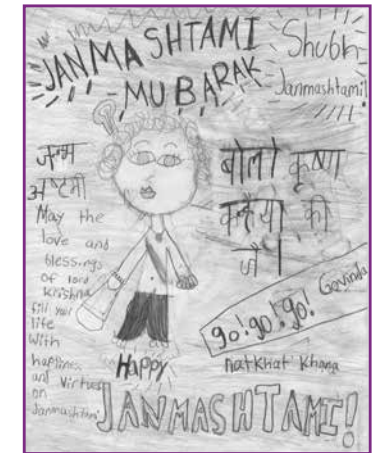 JANMASHTAMI
MUBARAK
Shubh
Janmashtami!
जन्म
अष्टमी
May the
love and
blessings
of lord
Krishna
fill your
life
With
happiness
and virtues
on
Janmashtami
बोलो कृष्णा
कन्हैया की
जै ।
go! go! go! Govinda
natkhat Khana
Happy
JANMASHTAMI!